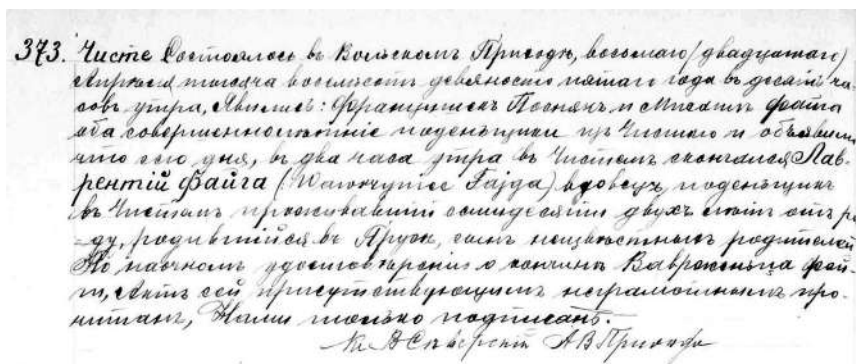 373. Чисте Состоялось въ Вольскомъ Приходѣ, восьмаго (двадцатаго)
Апрѣля тысяча восемьсотъ девяносто пятаго года въ десять ча-
совъ утра, Явились: Францишекъ Познякъ и Михаилъ Файга
оба совершеннолѣтніе поденьщики изъ Чистаго и объявили
что сего дня, въ два часа утра въ Чистомъ скончался Лав-
рентій Файга (Wawrzyniec Fajga) вдовецъ, поденьщикъ
въ Чистомъ проживавшій осмидесяти двухъ лѣтъ отъ ро-
=ду, родившійся въ сынъ неизвѣстныхъ родителей
По наочномъ удостовѣреніи о кончинѣ Ваврженьца Фай-
ги, Актъ сей присутствующимъ неграмотнымъ про-
читанъ, Нами только подписанъ.-